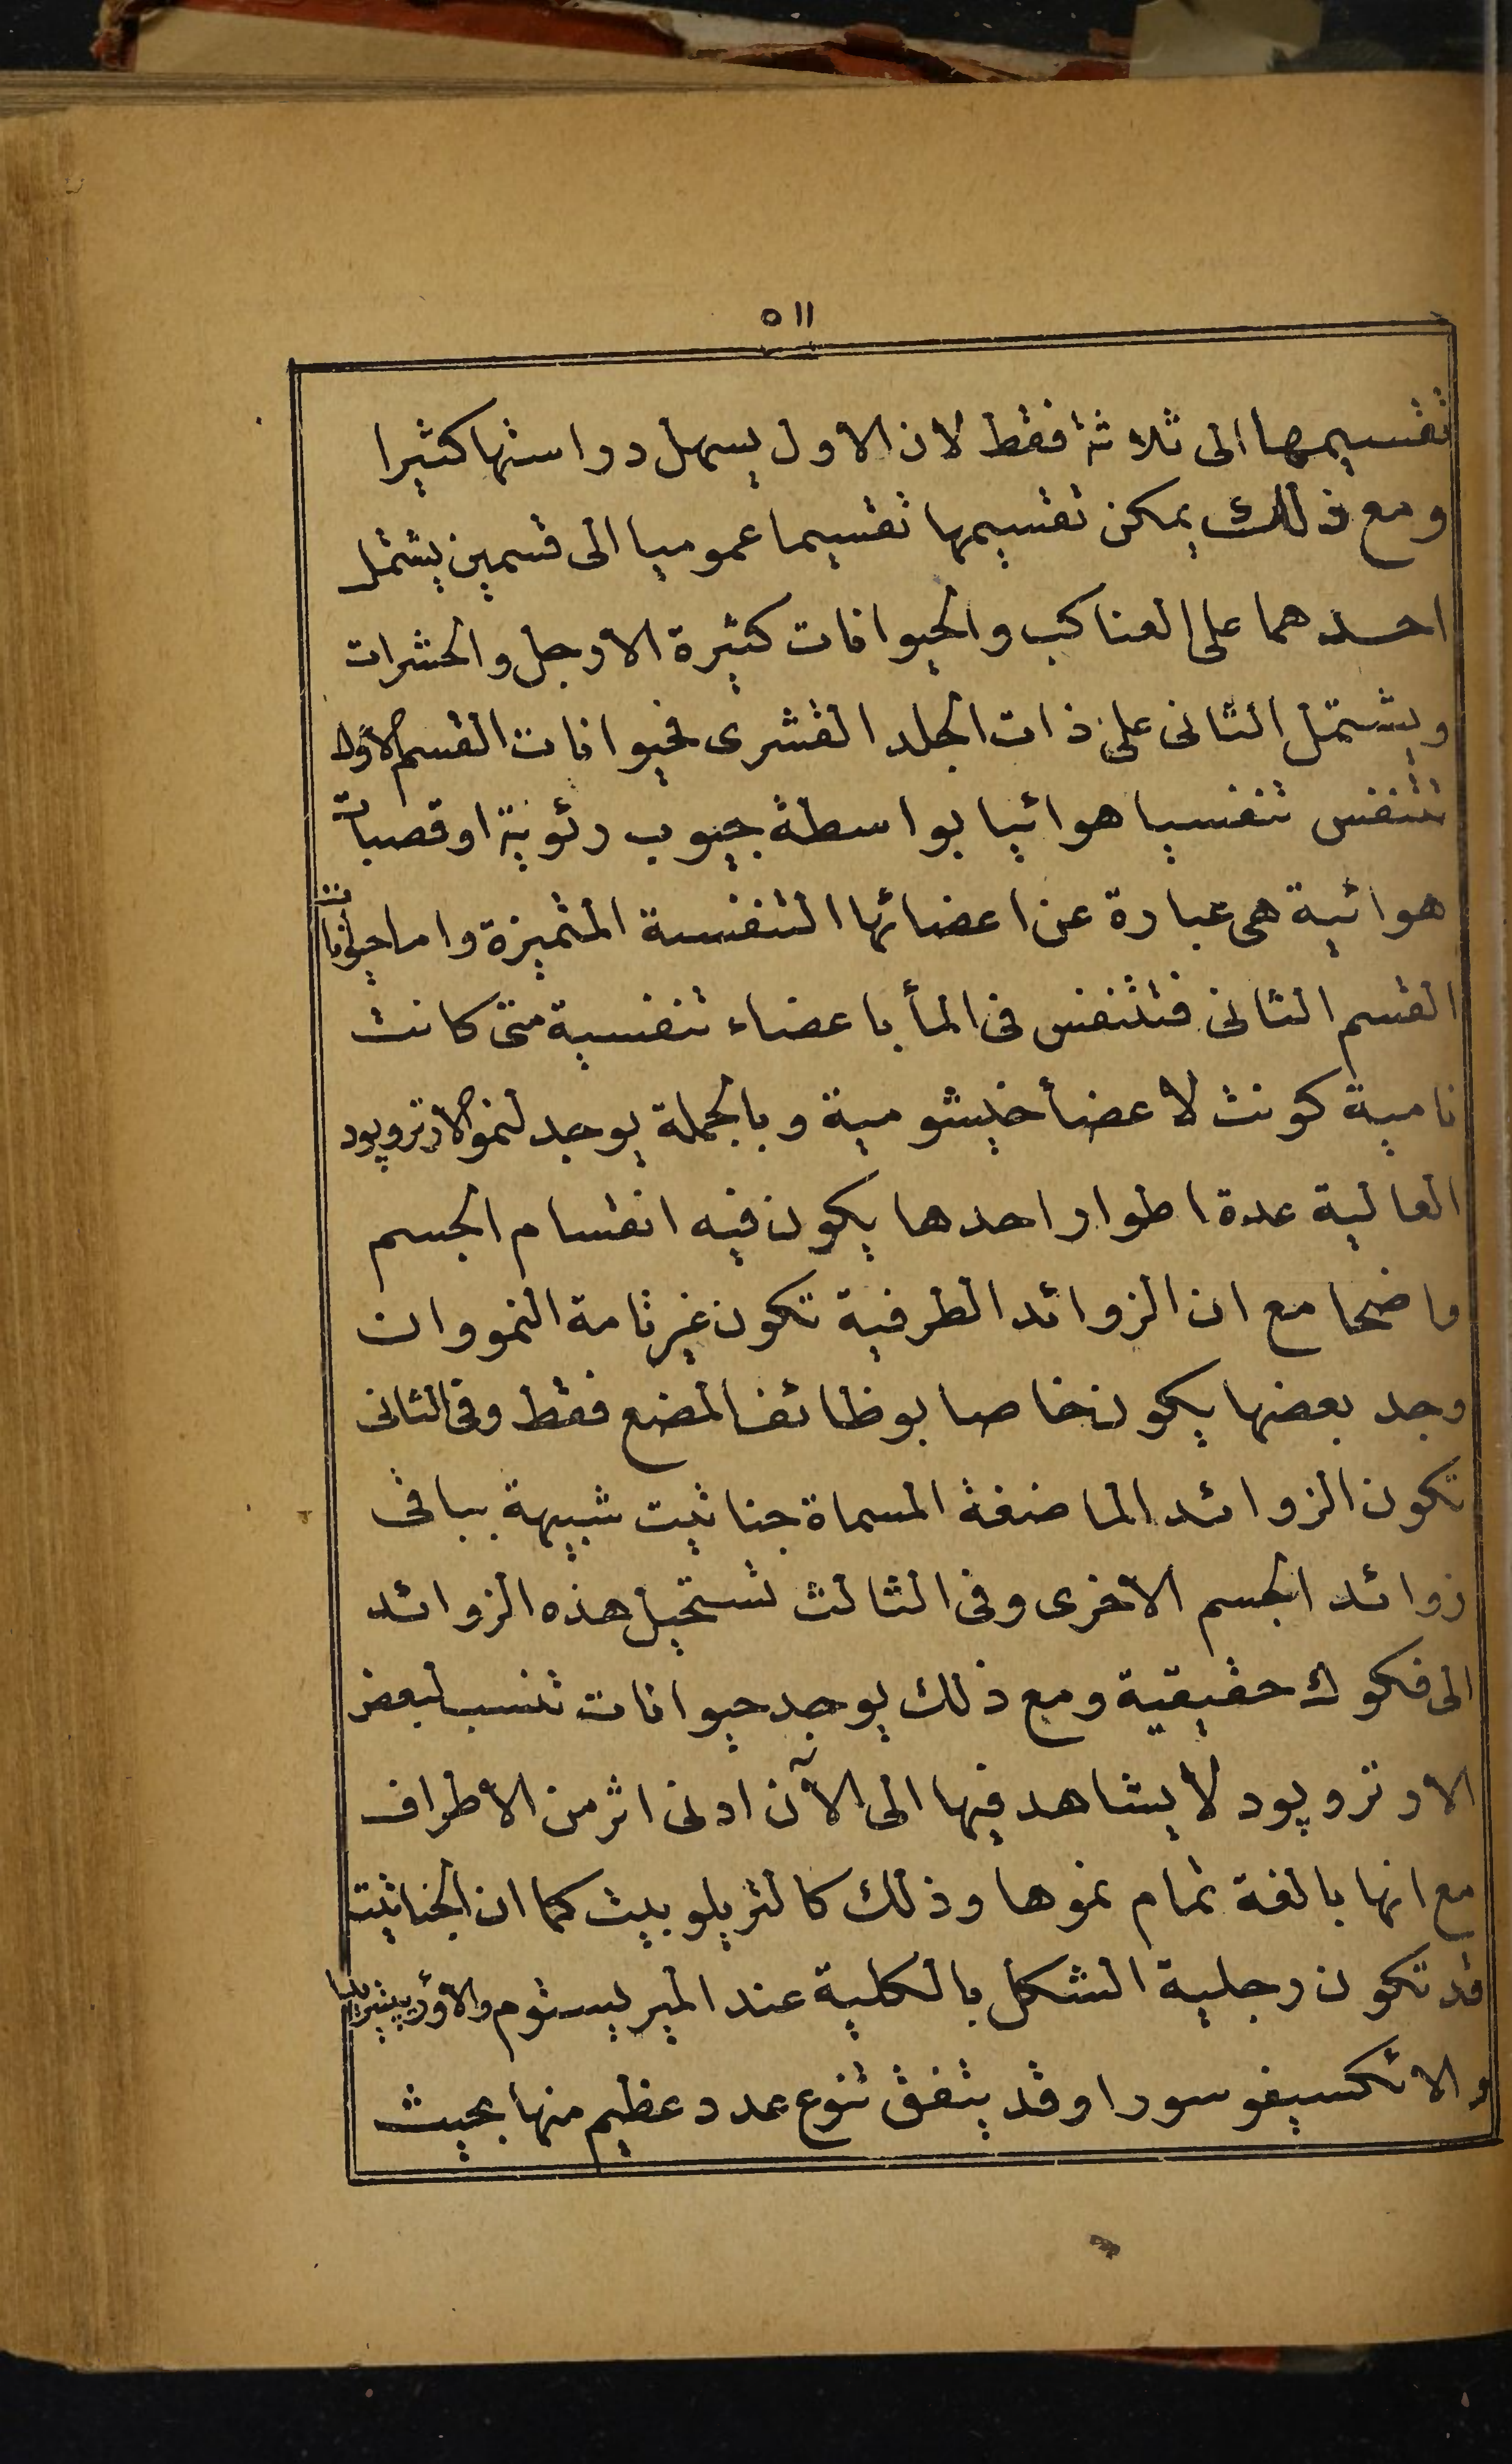 ٥١١
تقسيمها الى ثلاثة فقط لان الاول يسهل دراستها كثيرا
ومع ذلك يمكن تقسيمها تقسيما عموميا الى قسمين يشتمل
احدهما على العناكب والحيوانات كثيرة الارجل والحشرات
ويشتمل الثانى على ذات الجلد القشرى فحيوانات القسم الاول
تتنفس تنفسيا هوائيا بواسطة جيوب رئوية اوقصبات
هوائية هى عبارة عن اعضائها التنفسية المتميزة واما حيوانات
القسم الثانى فتتنفس فى المأ باعضاء تنفسية متى كانت
نامية كونت لاعضأ خيشومية وبالجملة يوجد لنمو الارتروپود
العالية عدة اطوار احدها يكون فيه انقسام الجسم
واضحا مع ان الزوائد الطرفية تكون غير تامة النمو وان
وجد بعضها يكون خاصا بوظائف المضغ فقط وفى الثانى
تكون الزوائد الماضغة المسماة جناثيت شبيهة بباقى
زوائد الجسم الاخرى وفى الثالث تستحيل هذه الزوائد
الى فكوك حقيقية ومع ذلك يوجد حيوانات تنسب لبعض
الارتروپود لا يشاهد فيها الى الآن ادنى اثر من الاطراف
مع انها بالغة تمام نموها وذلك كالتريلوبيت كما ان الجناثيت
قد تكون رجلية الشكل بالكلية عند الميريستوم
والائكسيفوسورا وقد يتفق تنوع عدد عظيم منها بحيث